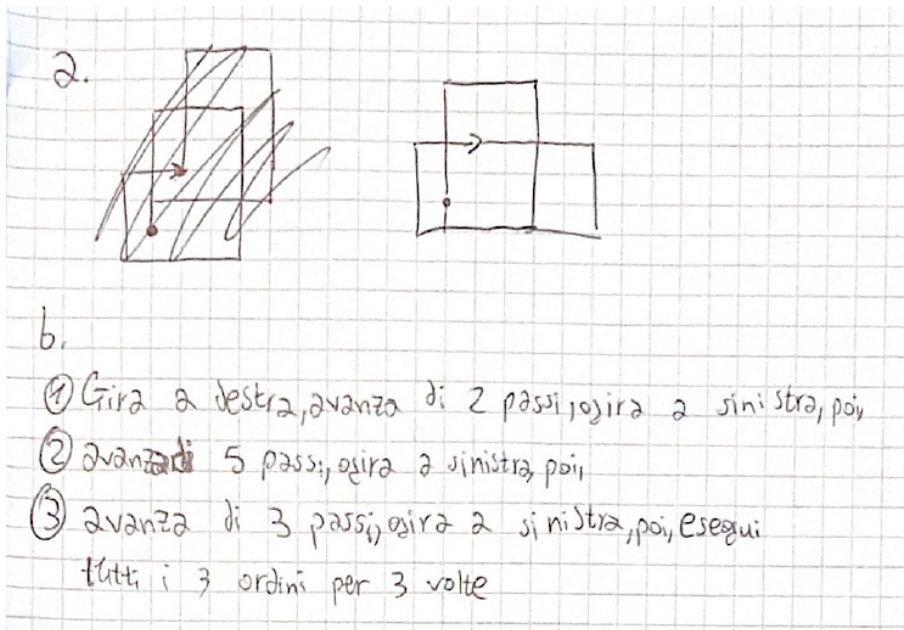 a.
b.
① Gira a destra, avanza di 2 passi, gira a sinistra, poi,
② avanza di 5 passi, gira a sinistra, poi,
③ avanza di 3 passi, gira a sinistra, poi, esegui
tutti i 3 ordini per 3 volte